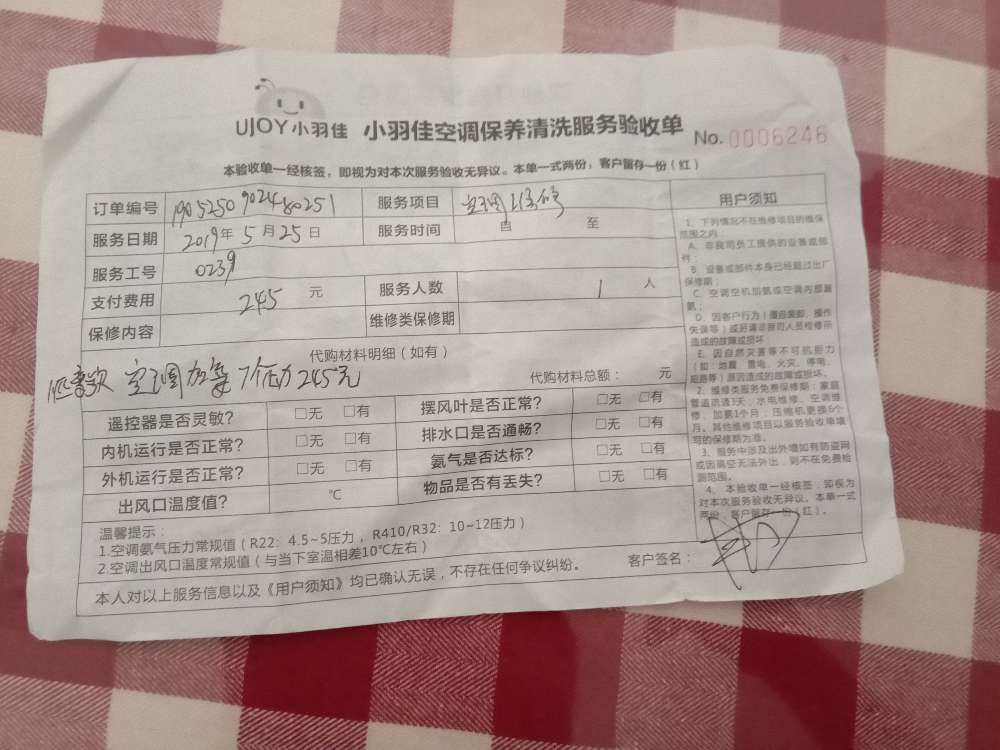 UJOY小羽佳 小羽佳空调保养清洗服务验收单 No.0006246
本验收单一经核签，即视为对本次服务验收无异议。本单一式两份，客户留存一份（红）
订单编号 190525090248 0251 服务项目 空调维修
服务日期 2019年5月25日 服务时间 自 至
服务工号 0239
支付费用 245 元 服务人数 1 人
保修内容 维修类保修期
代购材料明细（如有）
空调加氟7个压力245元 代购材料总额： 元
遥控器是否灵敏？ □无 □有 摆风叶是否正常？ □无 □有
内机运行是否正常？ □无 □有 排水口是否通畅？ □无 □有
外机运行是否正常？ □无 □有 氨气是否达标？ □无 □有
出风口温度值？ ℃ 物品是否有丢失？ □无 □有
温馨提示：
1.空调氨气压力常规值（R22：4.5~5压力，R410/R32：10~12压力）
2.空调出风口温度常规值（与当下室温相差10℃左右）
本人对以上服务信息以及《用户须知》均已确认无误，不存在任何争议纠纷。 客户签名：
用户须知
1、下列情况不在维修项目的维保
范围之内：
A、非我司员工提供的设备或部
件；
B、设备或部件本身已经超过出厂
保修期；
C、空调空机加氨或空调内部漏
氨；
D、因客户行为（擅自装卸、操作
失误等）或另请非我司人员检修所
造成的故障或损坏
E、因自然灾害等不可抗拒力
（如：地震、雷电、火灾、停电、
短路等）原因造成的故障或损坏。
2、维修类服务免费保修期：家庭
管道疏通3天；水电维修、空调维
修、加氨1个月；压缩机更换6个
月。其他维修项目以服务验收单填
写的保修期为准。
3、服务中涉及出外墙如有防盗网
或因高空无法外出，则不在免费检
测范围。
4、本验收单一经核签，即视为
对本次服务验收无异议。本单一式
两份，客户留存一份（红）。